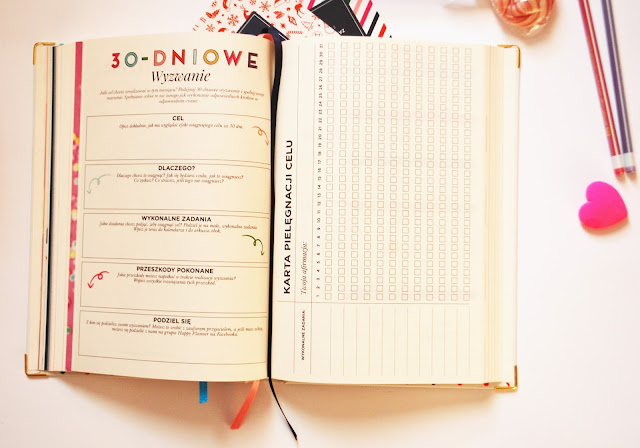 30-DNIOWE
Wyzwanie
CEL
Opisz dokładnie, jak ma wyglądać efekt osiągniętego celu za 30 dni.
DLACZEGO?
Dlaczego chcesz to osiągnąć? Jak się będziesz czuła, jak to osiągniesz?
Co zyskasz? Co stracisz, jeśli tego nie osiągniesz?
WYKONALNE ZADANIA
Jakie działania chcesz podjąć, żeby osiągnąć cel? Podziel je na małe, wykonalne zadania.
Wpisz je teraz do kalendarza i do arkusza obok.
PRZESZKODY POKONANE
Jakie przeszkody możesz napotkać w trakcie realizacji wyzwania?
Wypisz wszystkie rozwiązania tych przeszkód.
PODZIEL SIĘ
Z kim się podzielisz swoim wyzwaniem? Możesz to zrobić z zaufanym przyjacielem, a jeśli masz ochotę,
możesz się podzielić z nami na grupie Happy Planner na Facebooku.
KARTA PIELĘGNACJI CELU
Twoja afirmacja:
1 2 3 4 5 6 7 8 9 10 11 12 13 14 15 16 17 18 19 20 21 22 23 24 25 26 27 28 29 30 31
WYKONALNE ZADANIA: